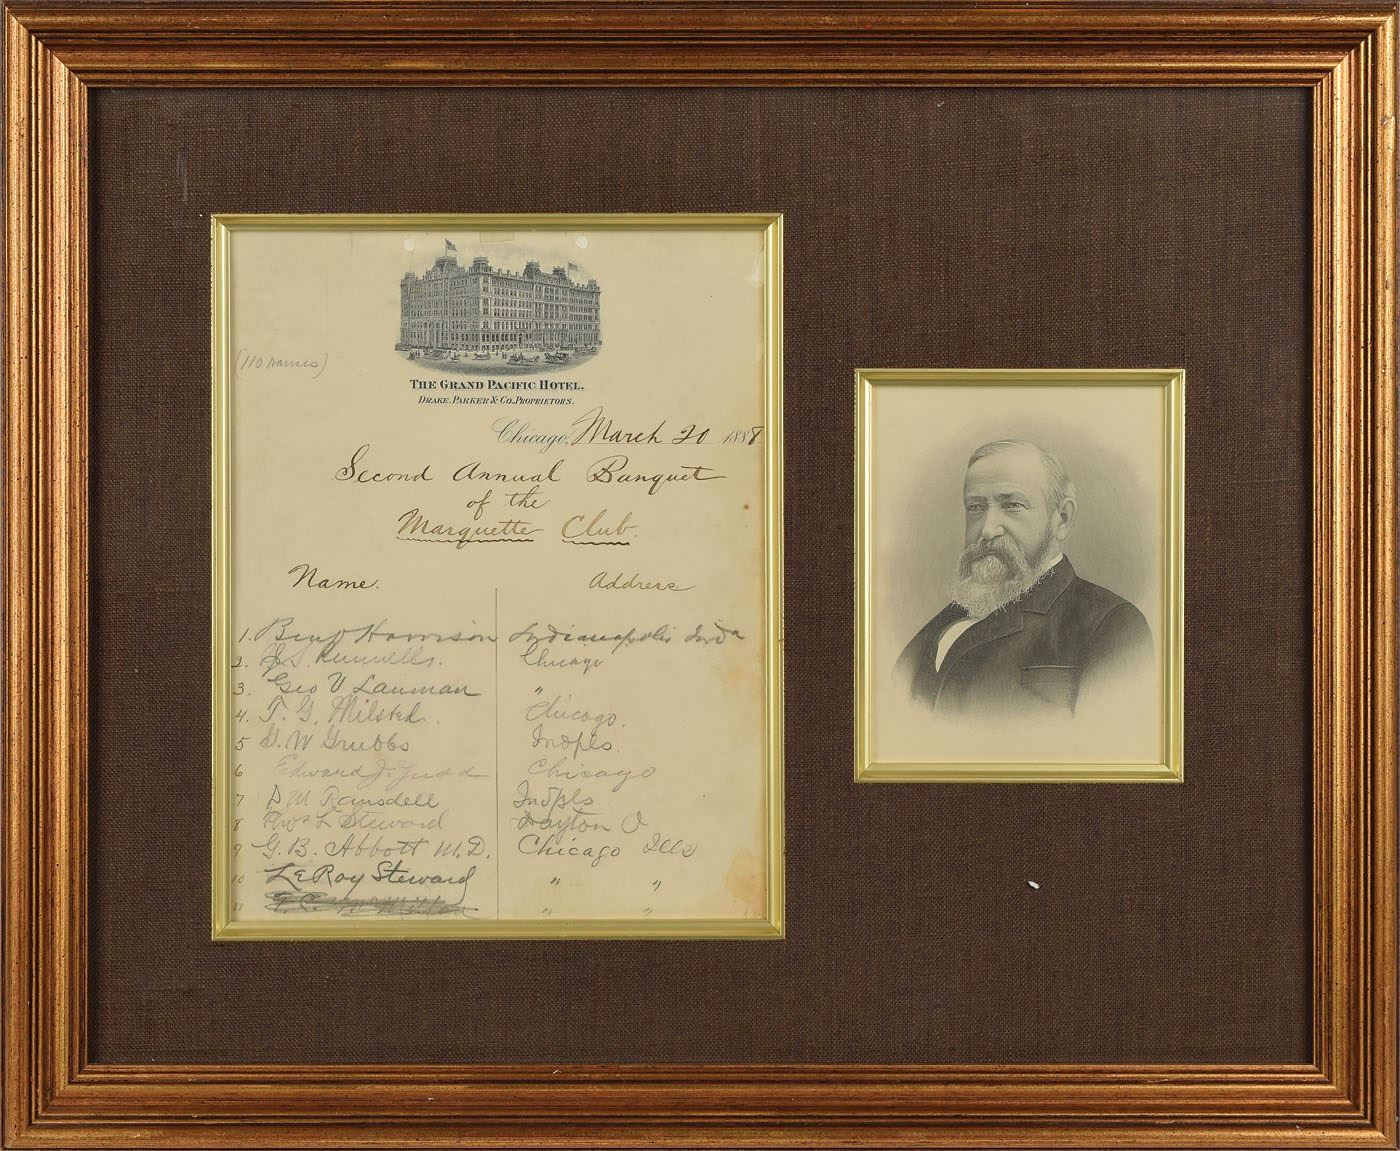 (110 names)
THE GRAND PACIFIC HOTEL.
DRAKE, PARKER & CO., PROPRIETORS.
Chicago, March 20 1888
Second Annual Banquet
of the
Marquette Club.
Name. Address
1. Benj Harrison Indianapolis Inda
2. Runnells. Chicago
3. Geo V Lauman "
4. T. G. Milsted. Chicago.
5 G. W Grubbs Indpls.
6 Edward J. Judd Chicago
7 D M Ransdell Indpls
8 L Steward Dayton O
9 G. B. Abbott M.D. Chicago Ills
10 LeRoy Steward " "
11 " "